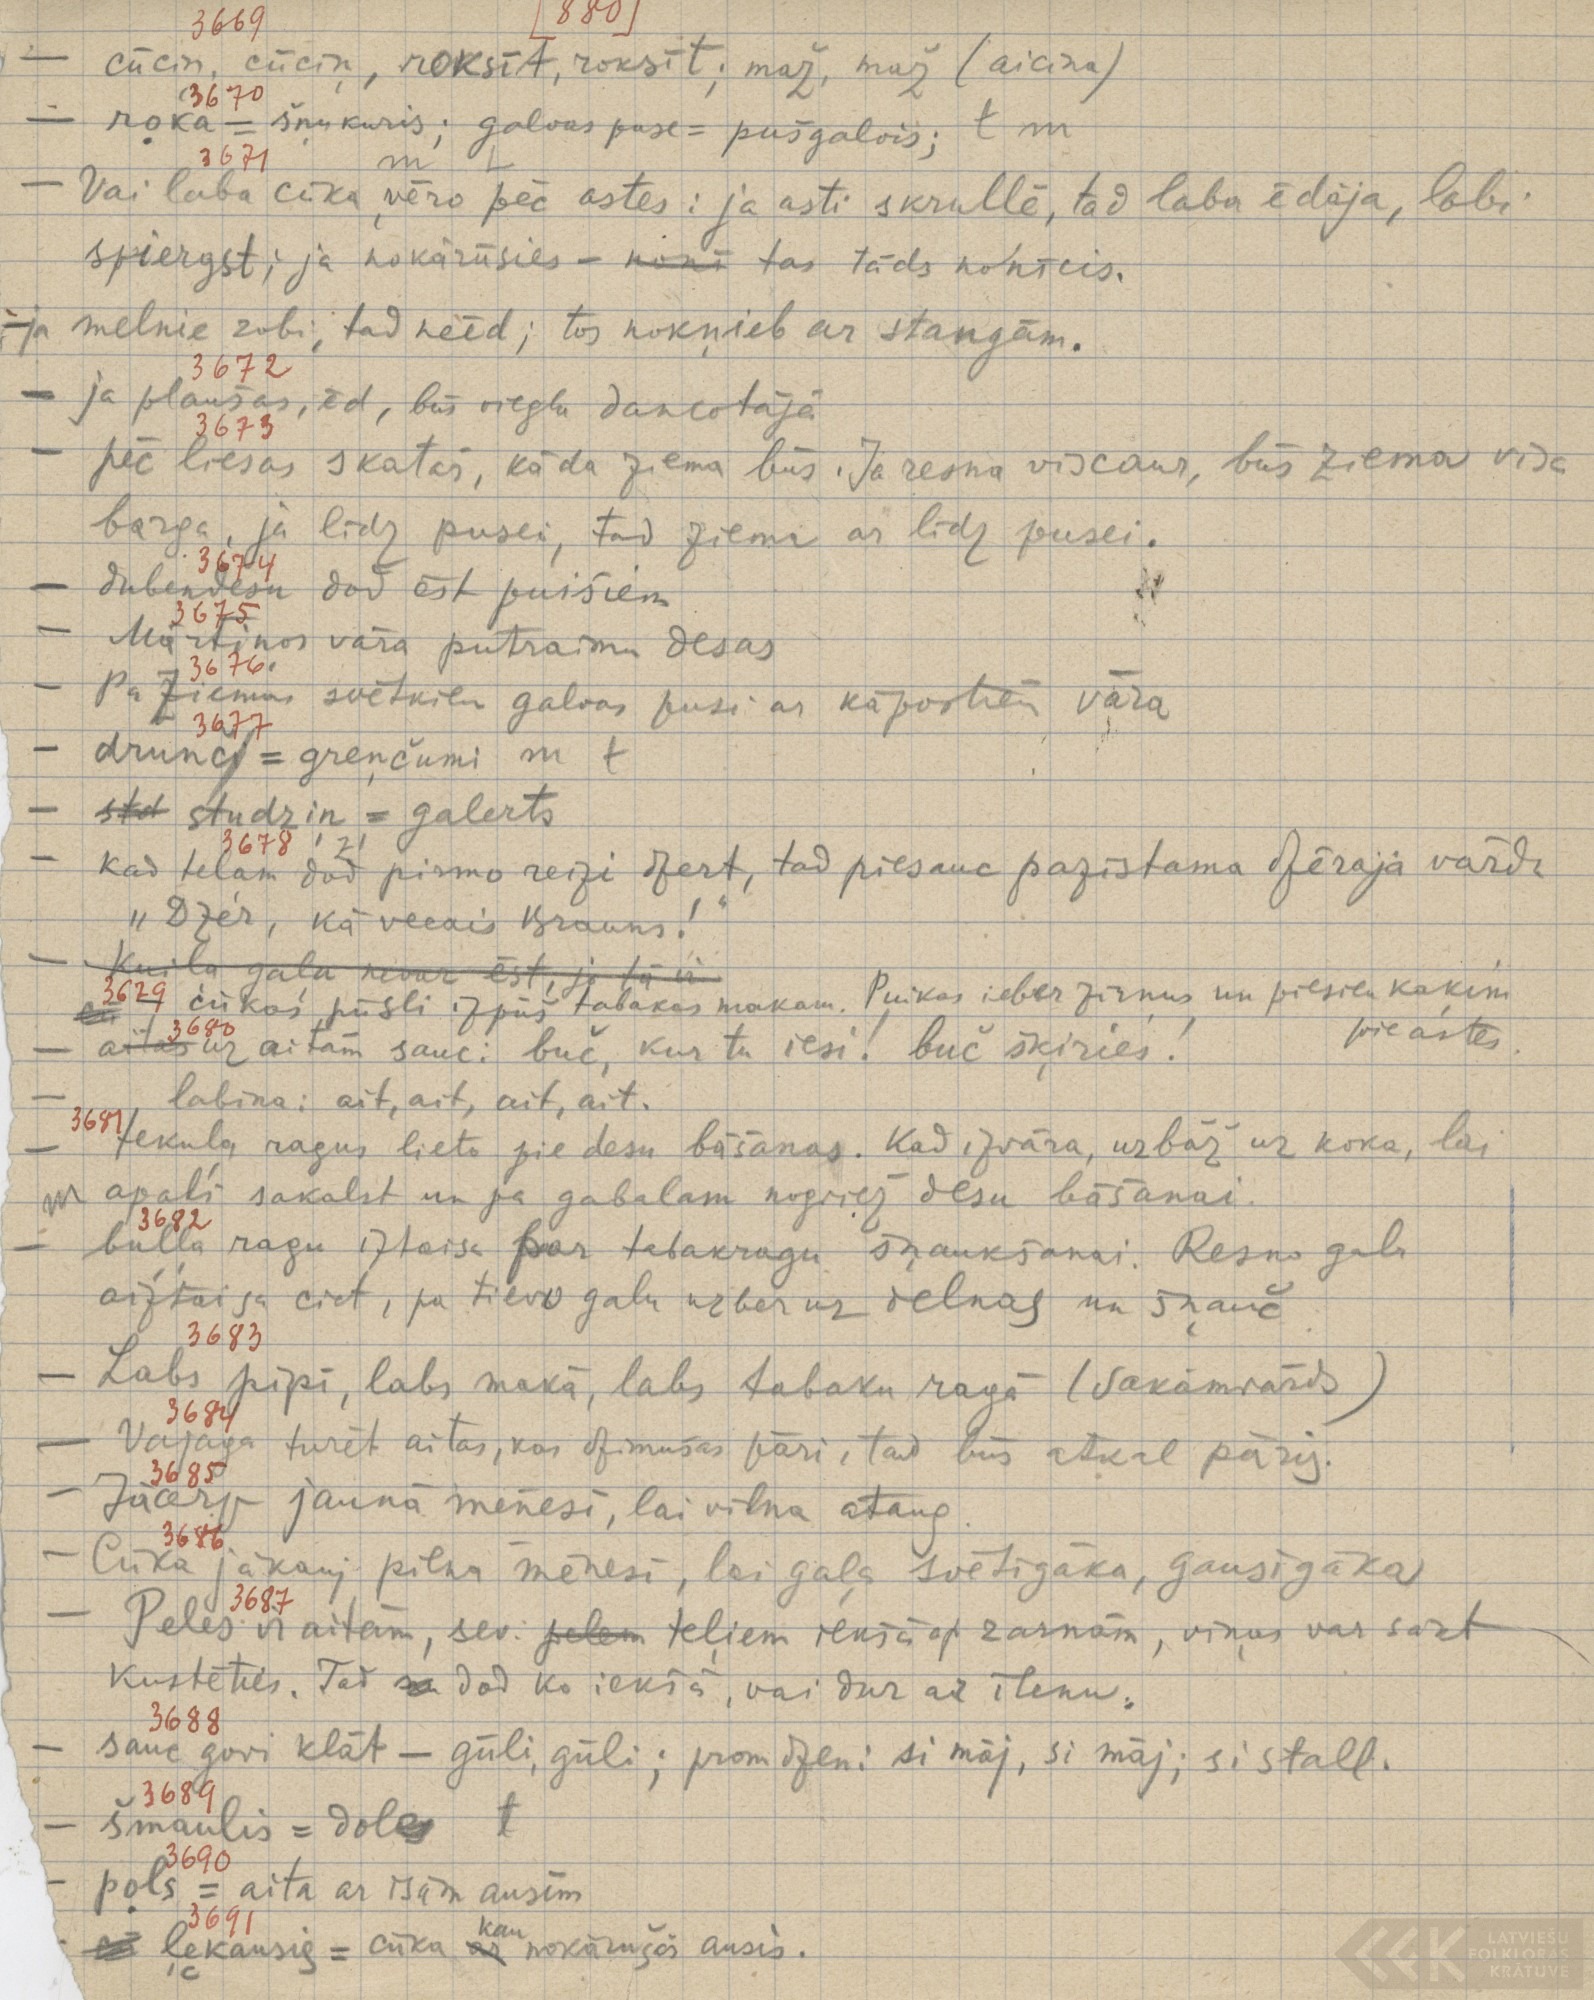 [880]
3669
— cūciņ, cūciņ, roksīt, roksīt; maž, maž (aicina)
3670
— roka = šņukuris; galvas puse = pušgalvis; t m
3671
m t
— Vai laba cūka vēro pēc astes: ja asti skrullē, tad laba ēdāja, labi
spiergst; ja nokārūsies – noni tas tāds nonīcis.
— ja melnie zobi, tad neēd; tos nokņieb ar stangām.
3672
— ja plaušas, ēd, būs viegla dancotāja
3673
— pēc liesas skatās, kāda ziema būs. Ja resna viscaur, būs ziema visa
barga, ja līdz pusei, tad ziema ar līdz pusei.
3674
— dubendesu dod ēst puišiem
3675
— Mārtiņos vāra putraimu desas
3676
— Pa Ziemas svētkiem galvas pusi ar kāpostiem vāra
3677
— drunči = greņčumi m t
— std studziņ = galerts
3678
— kad teļam dod pirmo reizi dzert, tad piesauc pazīstama dzērāja vārdu
„Dzer, kā vecais Brauns!“
— Kuiļa gaļu nevar ēst, ja tā ir
3679 cūkas pūsli izpūš tabakas makam. Puikas ieber zirņus un piesien kaķim
pie astes.
3680
— aitas uz aitām sauc: buč, kur tu iesi! buč šķiries!
— labina: ait, ait, ait, ait.
3681
— tekuļa ragus lieto pie desu bāšanas. Kad izvāra, uzbāž uz koka, lai
m apaļi sakalst un pa gabalam nogriež desu bāšanai.
3682
— buļļa ragu iztaisa par tabakragu šņaukšanai. Resno galu
aiztaisa ciet, pa tievo galu uzber uz delnas un šņauc
3683
— Labs pīpī, labs makā, labs tabaku ragā (Sakāmvārds)
3684
— Vajaga turēt aitas, kas dzimušas pārī, tad būs atkal pāris.
3685
— Jācērp jaunā mēnesī, lai vilna ataug.
3686
— Cūka jākauj pilnā mēnesī, lai gaļa svētīgāka, gausīgāka
3687
— Peles ir aitām, sev. pelem teļiem iekšā ap zarnām, viņas var sākt
kustēties. Tad sa dod ko iekšā, vai dur ar īlenu.
3688
— sauc govi klāt — gūli, gūli; prom dzen: si māj, si māj; si stall.
3689
— šmaulis = doles t
3690
— pols = aita ar īsām ausīm
3691
— ļekausis = cūka ar kau nokārušās ausis.
LATVIEŠU
FOLKLORAS
KRĀTUVE